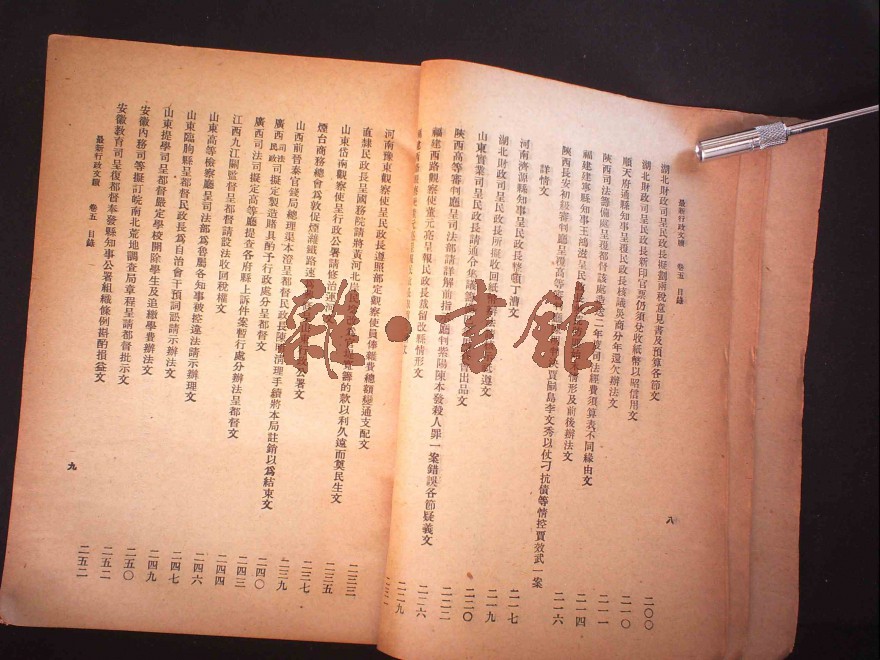 最新行政文牘 卷五 目錄
湖北財政司呈民政長擬劃兩稅意見書及預算各節文 二〇〇
湖北財政司呈民政長新印官票仍須兌收紙幣以昭信用文 二一〇
順天府通縣知事呈覆民政長核議英商分年還欠辦法文 二一一
陝西司法籌備處呈覆都督該處造送二年度司法經費須算表不同緣由文 二一四
福建建寧縣知事王鴻 呈民 情形及前後辦法文 二一六
陝西長安初級審判廳呈覆高等 判決賈嗣島李文秀以仗刁抗債等情控賈效武一案
詳情文
河南濟源縣知事呈民政長整頓丁漕文 二一七
湖北財政司呈民政長所擬收回紙 辦法 遵文 二一九
山東實業司呈民政長請通令 集議 會出品文 二二〇
陝西高等審判廳呈司法部請詳解前 廳判 陽陳本發殺人罪一案錯誤各節疑義文 二二二
福建西路觀察使董元亮呈報民政長裁留改縣情形文 二二六
二二九
八
河南豫東觀察使呈民政長遵照部定觀察使員俸雜費總額變通支配文
直隸民政長呈國務院請將黃河北岸民 籌的款以利久遠而奠民生文 二三三
山東岱南觀察使呈行政公署請修治運河 二三五
煙台商務總會為敦促煙濰鐵路速 山東 公署文 二三七
山西前晉泰官錢局總理渠本澄呈都督民政長陳明清理手續將本局註銷以為結束文 二三九
廣西司法民政司擬定製造賭具酌予行政處分呈都督文 二四〇
廣西司法司擬定高等廳提查各府縣上訴件案暫行處分辦法呈都督文 二四三
江西九江關監督呈都督請設法收回稅權文 二四四
山東高等檢察廳呈司法部為魯屬各知事被控違法請示辦理文 二四六
山東臨朐縣呈都督民政長為自治會干預詞訟請示辦法文 二四七
山東提學司呈都督嚴定學校開除學生及追繳學費辦法文 二四九
安徽內務司等擬訂皖南北荒地調查局章程呈請都督批示文 二五〇
安徽教育司呈復都督奉發縣知事公署組織條例斟酌損益文 二五二
最新行政文牘 卷五 目錄
九
雜·書館